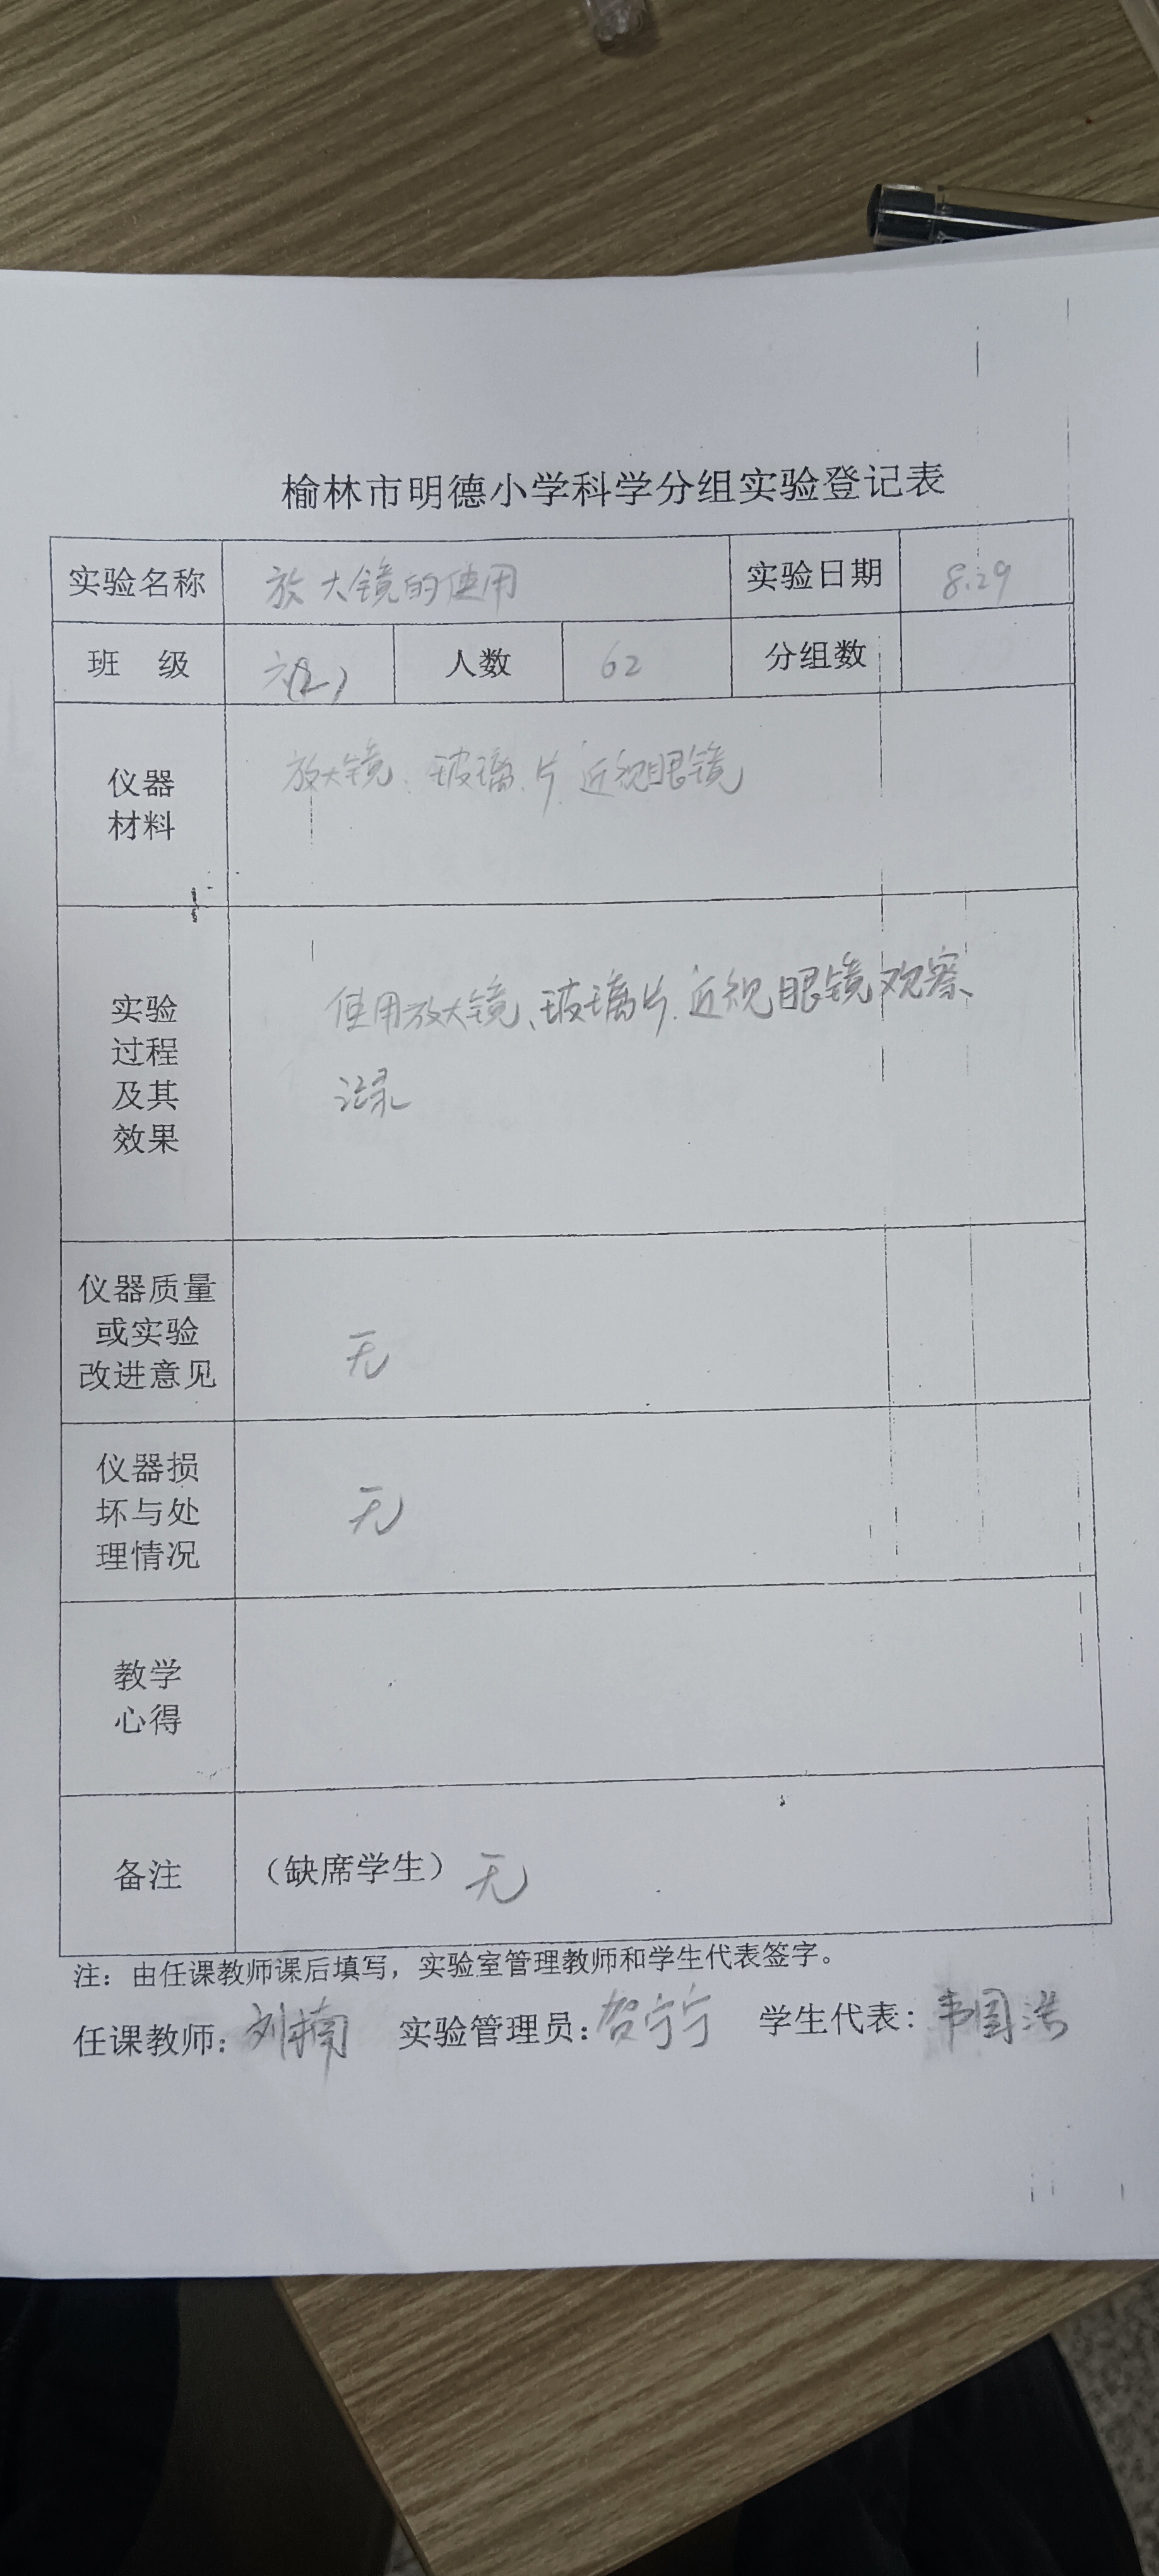 榆林市明德小学科学分组实验登记表
实验名称 放大镜的使用 实验日期 8.29
班 级 六(2) 人数 62 分组数
仪器
材料
放大镜、玻璃片、近视眼镜
实验
过程
及其
效果
使用放大镜、玻璃片、近视眼镜观察、
记录
仪器质量
或实验
改进意见
无
仪器损
坏与处
理情况
无
教学
心得
备注 (缺席学生) 无
注：由任课教师课后填写，实验室管理教师和学生代表签字。
任课教师：刘楠 实验管理员：贺宁宁 学生代表：韦国浩